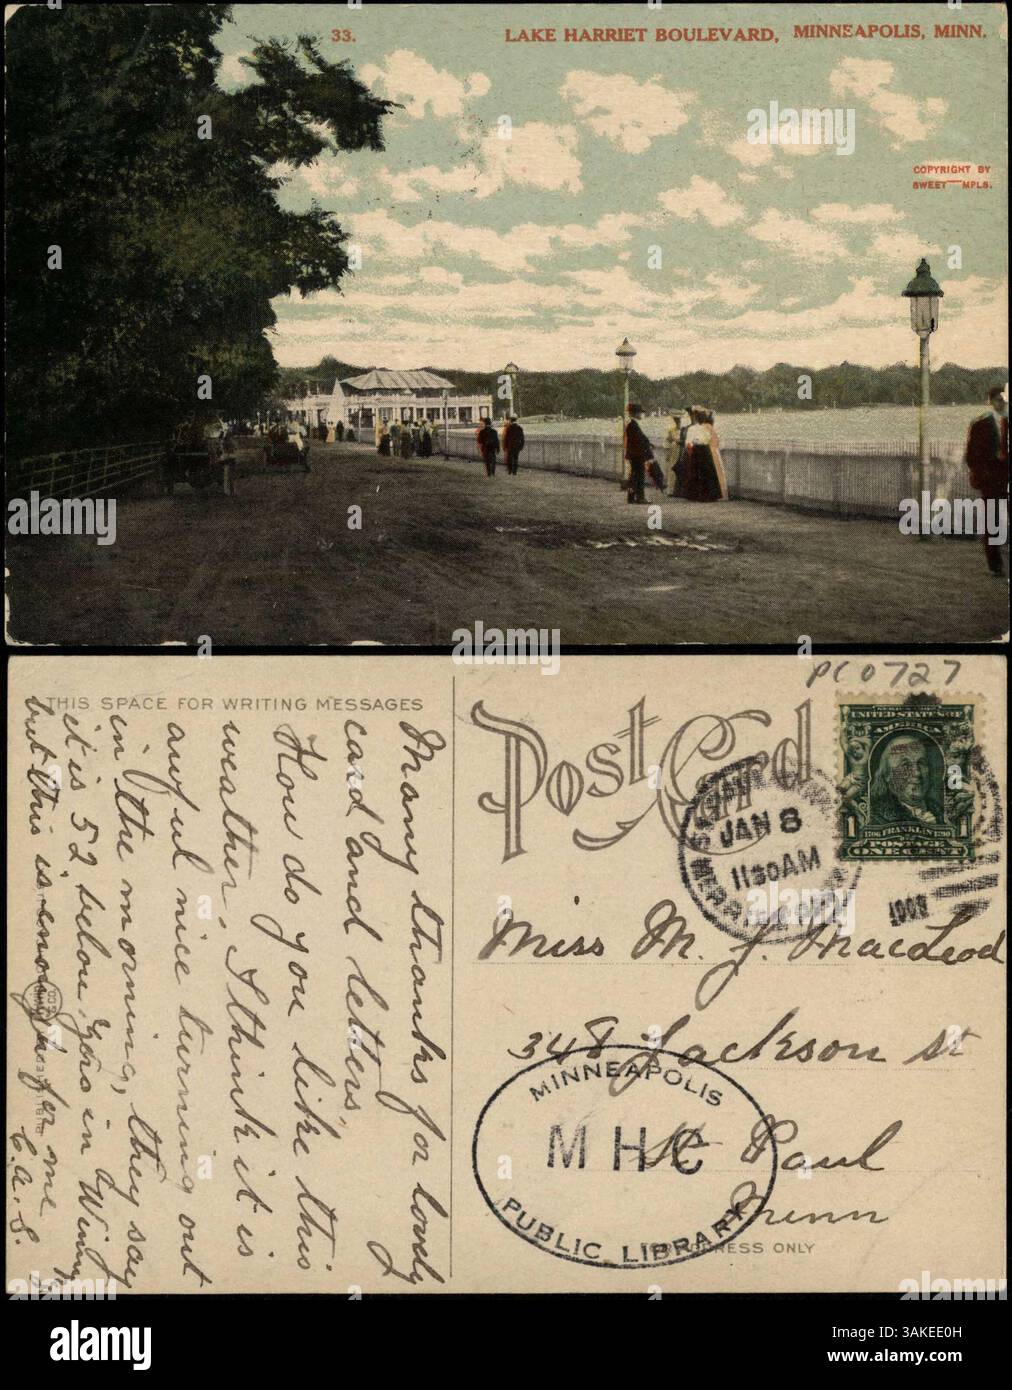 33.
LAKE HARRIET BOULEVARD, MINNEAPOLIS, MINN.
COPYRIGHT BY
SWEET MPLS.
PC0727
THIS SPACE FOR WRITING MESSAGES
Many thanks for lovely
card and letters,
How do you like this
weather, I think it is
awful nice turning out
in the morning, they say
it is 52 below zero in Winnipeg
but this is enough for me
C.A.S.
Post Card
JAN 8
11 30 AM
1908
UNITED STATES OF
AMERICA
1706 FRANKLIN 1790
POSTAGE
1 ONE CENT 1
Miss M. J. MacLeod
348 Jackson st
St Paul
Minn
MINNEAPOLIS
MHC
PUBLIC LIBRARY
FOR ADDRESS ONLY
alamy
Image ID: 2AKEE0H
www.alamy.com